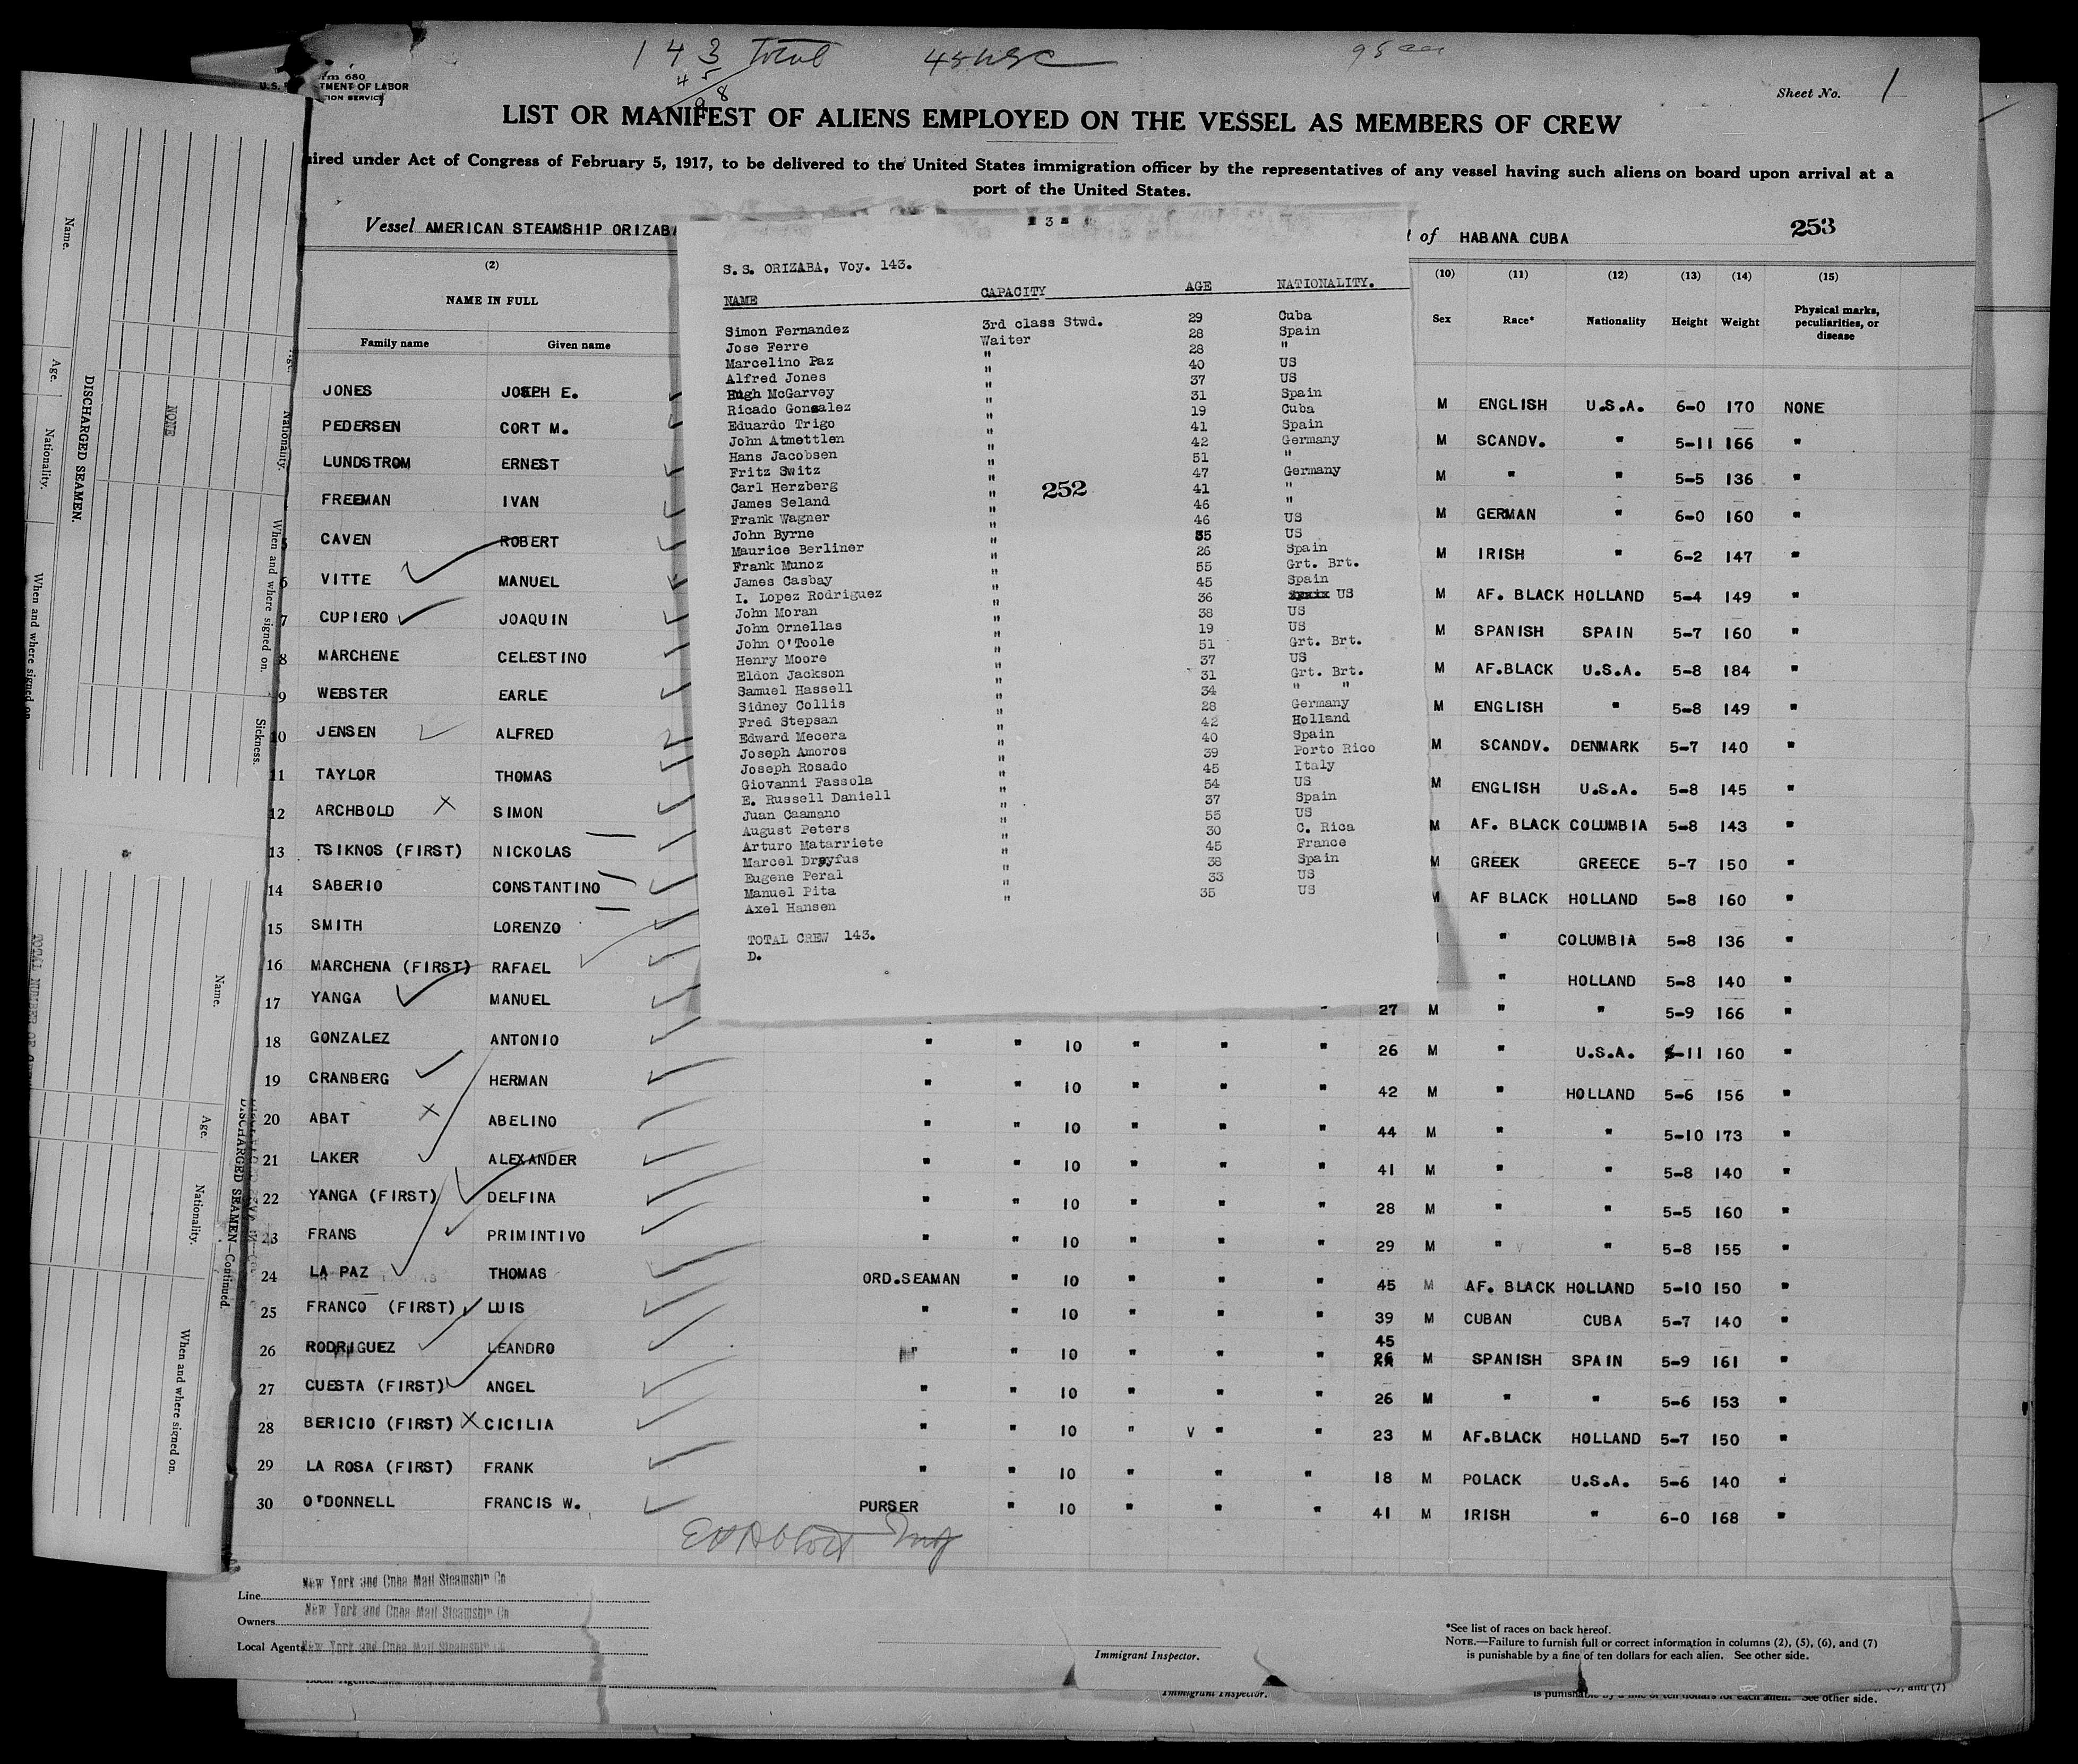 143 Total
45
98
Sheet No. 1
LIST OR MANIFEST OF ALIENS EMPLOYED ON THE VESSEL AS MEMBERS OF CREW
uired under Act of Congress of February 5, 1917, to be delivered to the United States immigration officer by the representatives of any vessel having such aliens on board upon arrival at a
port of the United States.
Vessel AMERICAN STEAMSHIP ORIZABA
of HABANA CUBA 253
(2) (10) (11) (12) (13) (14) (15)
NAME IN FULL Sex Race* Nationality Height Weight Physical marks, peculiarities, or disease
Family name Given name
JONES JOSEPH E. M ENGLISH U.S.A. 6-0 170 NONE
PEDERSEN CORT M. M SCANDV. " 5-11 166 "
LUNDSTROM ERNEST M " " 5-5 136 "
FREEMAN IVAN M GERMAN " 6-0 160 "
5 CAVEN ROBERT M IRISH " 6-2 147 "
6 VITTE MANUEL M AF. BLACK HOLLAND 5-4 149 "
7 CUPIERO JOAQUIN M SPANISH SPAIN 5-7 160 "
8 MARCHENE CELESTINO M AF.BLACK U.S.A. 5-8 184 "
9 WEBSTER EARLE M ENGLISH " 5-8 149 "
10 JENSEN ALFRED M SCANDV. DENMARK 5-7 140 "
11 TAYLOR THOMAS M ENGLISH U.S.A. 5-8 145 "
12 ARCHBOLD SIMON M AF. BLACK COLUMBIA 5-8 143 "
13 TSIKNOS (FIRST) NICKOLAS M GREEK GREECE 5-7 150 "
14 SABERIO CONSTANTINO M AF BLACK HOLLAND 5-8 160 "
15 SMITH LORENZO " COLUMBIA 5-8 136 "
16 MARCHENA (FIRST) RAFAEL " HOLLAND 5-8 140 "
17 YANGA MANUEL 27 M " " 5-9 166 "
18 GONZALEZ ANTONIO " " 10 " " " 26 M " U.S.A. 5-11 160 "
19 CRANBERG HERMAN " " 10 " " " 42 M " HOLLAND 5-6 156 "
20 ABAT ABELINO " " 10 " " " 44 M " " 5-10 173 "
21 LAKER ALEXANDER " " 10 " " " 41 M " " 5-8 140 "
22 YANGA (FIRST) DELFINA " " 10 " " " 28 M " " 5-5 160 "
23 FRANS PRIMINTIVO " " 10 " " " 29 M " " 5-8 155 "
24 LA PAZ THOMAS ORD.SEAMAN " 10 " " " 45 M AF. BLACK HOLLAND 5-10 150 "
25 FRANCO (FIRST) LUIS " " 10 " " " 39 M CUBAN CUBA 5-7 140 "
26 RODRIGUEZ LEANDRO " " 10 " " " 45 26 M SPANISH SPAIN 5-9 161 "
27 CUESTA (FIRST) ANGEL " " 10 " " " 26 M " " 5-6 153 "
28 BERICIO (FIRST) CICILIA " " 10 " " " 23 M AF.BLACK HOLLAND 5-7 150 "
29 LA ROSA (FIRST) FRANK " " 10 " " " 18 M POLACK U.S.A. 5-6 140 "
30 O'DONNELL FRANCIS W. PURSER " 10 " " " 41 M IRISH " 6-0 168 "
Line New York and Cuba Mail Steamship Co
Owners New York and Cuba Mail Steamship Co
Local Agents New York and Cuba Mail Steamship Co
Immigrant Inspector.
*See list of races on back hereof.
NOTE.—Failure to furnish full or correct information in columns (2), (5), (6), and (7)
is punishable by a fine of ten dollars for each alien. See other side.
Immigrant Inspector.
is punishable by a fine of ten dollars for each alien. See other side.
" 3 "
S.S. ORIZABA, Voy. 143.
NAME CAPACITY AGE NATIONALITY.
Simon Fernandez 3rd class Stwd. 29 Cuba
Jose Ferre Waiter 28 Spain
Marcelino Paz " 28 "
Alfred Jones " 40 US
Hugh McGarvey " 37 US
Ricado Gonzalez " 31 Spain
Eduardo Trigo " 19 Cuba
John Atmettlen " 41 Spain
Hans Jacobsen " 42 Germany
Fritz Switz " 51 "
Carl Herzberg " 47 Germany
James Seland " 41 "
Frank Wagner " 46 "
John Byrne " 46 US
Maurice Berliner " 35 US
Frank Munoz " 26 Spain
James Casbay " 55 Grt. Brt.
I. Lopez Rodriguez " 45 Spain
John Moran " 36 US
John Ornellas " 38 US
John O'Toole " 19 US
Henry Moore " 51 Grt. Brt.
Eldon Jackson " 37 US
Samuel Hassell " 31 Grt. Brt.
Sidney Collis " 34 " "
Fred Stepsan " 28 Germany
Edward Mecera " 42 Holland
Joseph Amoros " 40 Spain
Joseph Rosado " 39 Porto Rico
Giovanni Fassola " 45 Italy
E. Russell Daniell " 54 US
Juan Caamano " 37 Spain
August Peters " 55 US
Arturo Matarriete " 30 C. Rica
Marcel Dreyfus " 45 France
Eugene Peral " 38 Spain
Manuel Pita " 33 US
Axel Hansen " 35 US
252
TOTAL CREW 143.
D.
DISCHARGED SEAMEN.
Name. Age. Nationality. When and where signed on.
NONE
Nationality. When and where signed on. Sickness.
DISCHARGED SEAMEN—Continued.
Name. Age. Nationality. When and where signed on.